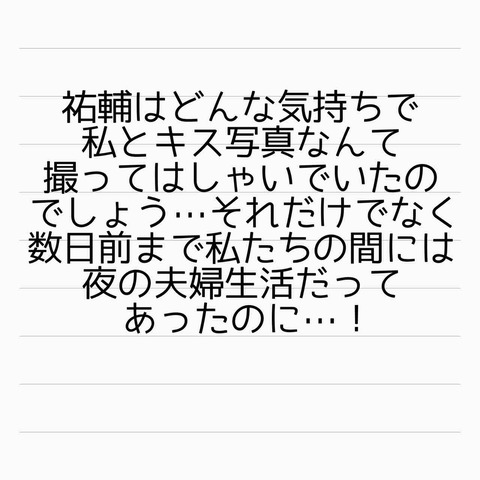 祐輔はどんな気持ちで
私とキス写真なんて
撮ってはしゃいでいたの
でしょう…それだけでなく
数日前まで私たちの間には
夜の夫婦生活だって
あったのに…！